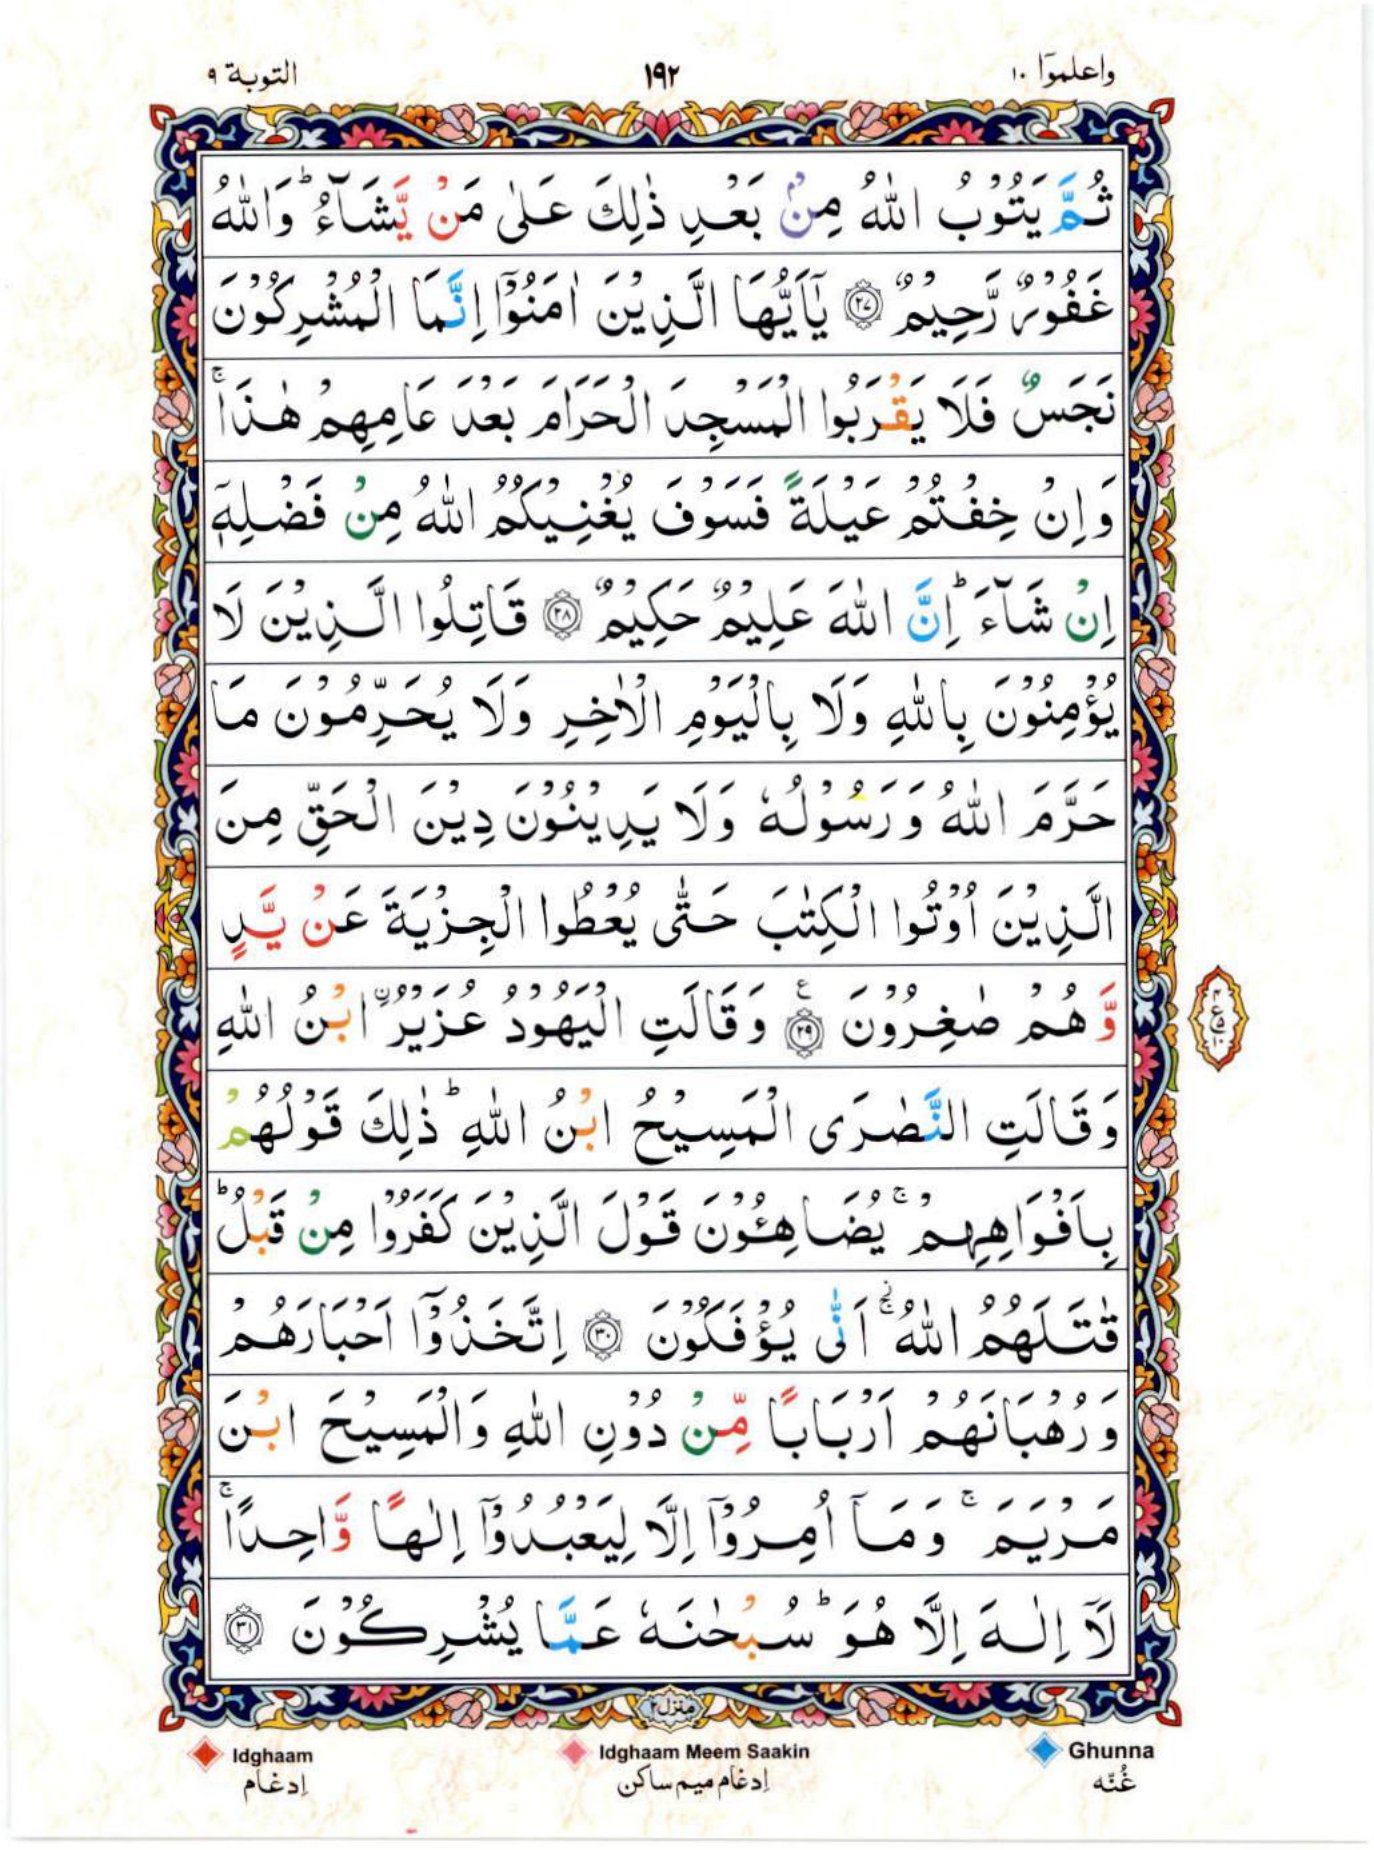 واعلموٓا ١٠
١٩٢
التوبة ٩
ثُمَّ يَتُوْبُ اللّٰهُ مِنْۢ بَعْدِ ذٰلِكَ عَلٰى مَنْ يَّشَآءُ ؕ وَاللّٰهُ
غَفُوْرٌ رَّحِيْمٌ ﴿٢٧﴾ يٰٓاَيُّهَا الَّذِيْنَ اٰمَنُوْٓا اِنَّمَا الْمُشْرِكُوْنَ
نَجَسٌ فَلَا يَقْرَبُوا الْمَسْجِدَ الْحَرَامَ بَعْدَ عَامِهِمْ هٰذَا ۚ
وَاِنْ خِفْتُمْ عَيْلَةً فَسَوْفَ يُغْنِيْكُمُ اللّٰهُ مِنْ فَضْلِهٖٓ
اِنْ شَآءَ ؕ اِنَّ اللّٰهَ عَلِيْمٌ حَكِيْمٌ ﴿٢٨﴾ قَاتِلُوا الَّذِيْنَ لَا
يُؤْمِنُوْنَ بِاللّٰهِ وَلَا بِالْيَوْمِ الْاٰخِرِ وَلَا يُحَرِّمُوْنَ مَا
حَرَّمَ اللّٰهُ وَرَسُوْلُهٗ وَلَا يَدِيْنُوْنَ دِيْنَ الْحَقِّ مِنَ
الَّذِيْنَ اُوْتُوا الْكِتٰبَ حَتّٰى يُعْطُوا الْجِزْيَةَ عَنْ يَّدٍ
وَّهُمْ صٰغِرُوْنَ ﴿٢٩﴾ ع وَقَالَتِ الْيَهُوْدُ عُزَيْرُ ۨابْنُ اللّٰهِ
وَقَالَتِ النَّصٰرَى الْمَسِيْحُ ابْنُ اللّٰهِ ؕ ذٰلِكَ قَوْلُهُمْ
بِاَفْوَاهِهِمْ ۚ يُضَاهِئُوْنَ قَوْلَ الَّذِيْنَ كَفَرُوْا مِنْ قَبْلُ ؕ
قٰتَلَهُمُ اللّٰهُ ۚ اَنّٰى يُؤْفَكُوْنَ ﴿٣٠﴾ اِتَّخَذُوْٓا اَحْبَارَهُمْ
وَرُهْبَانَهُمْ اَرْبَابًا مِّنْ دُوْنِ اللّٰهِ وَالْمَسِيْحَ ابْنَ
مَرْيَمَ ۚ وَمَآ اُمِرُوْٓا اِلَّا لِيَعْبُدُوْٓا اِلٰهًا وَّاحِدًا ۚ
لَآ اِلٰهَ اِلَّا هُوَ ؕ سُبْحٰنَهٗ عَمَّا يُشْرِكُوْنَ ﴿٣١﴾
منزل ٢
Ghunna
غُنّه
Idghaam Meem Saakin
اِدغام ميم ساكن
Idghaam
اِدغام